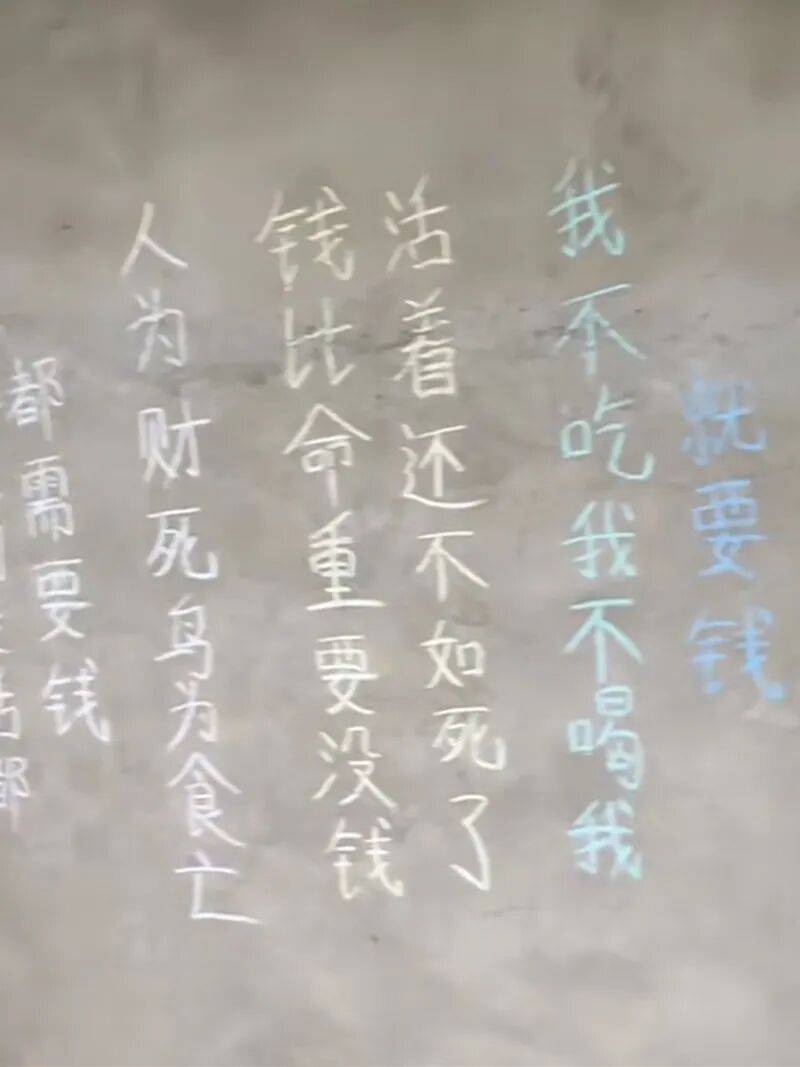 活都
都需要钱
人为财死鸟为食亡
钱比命重要没钱
活着还不如死了
我不吃我不喝我
就要钱